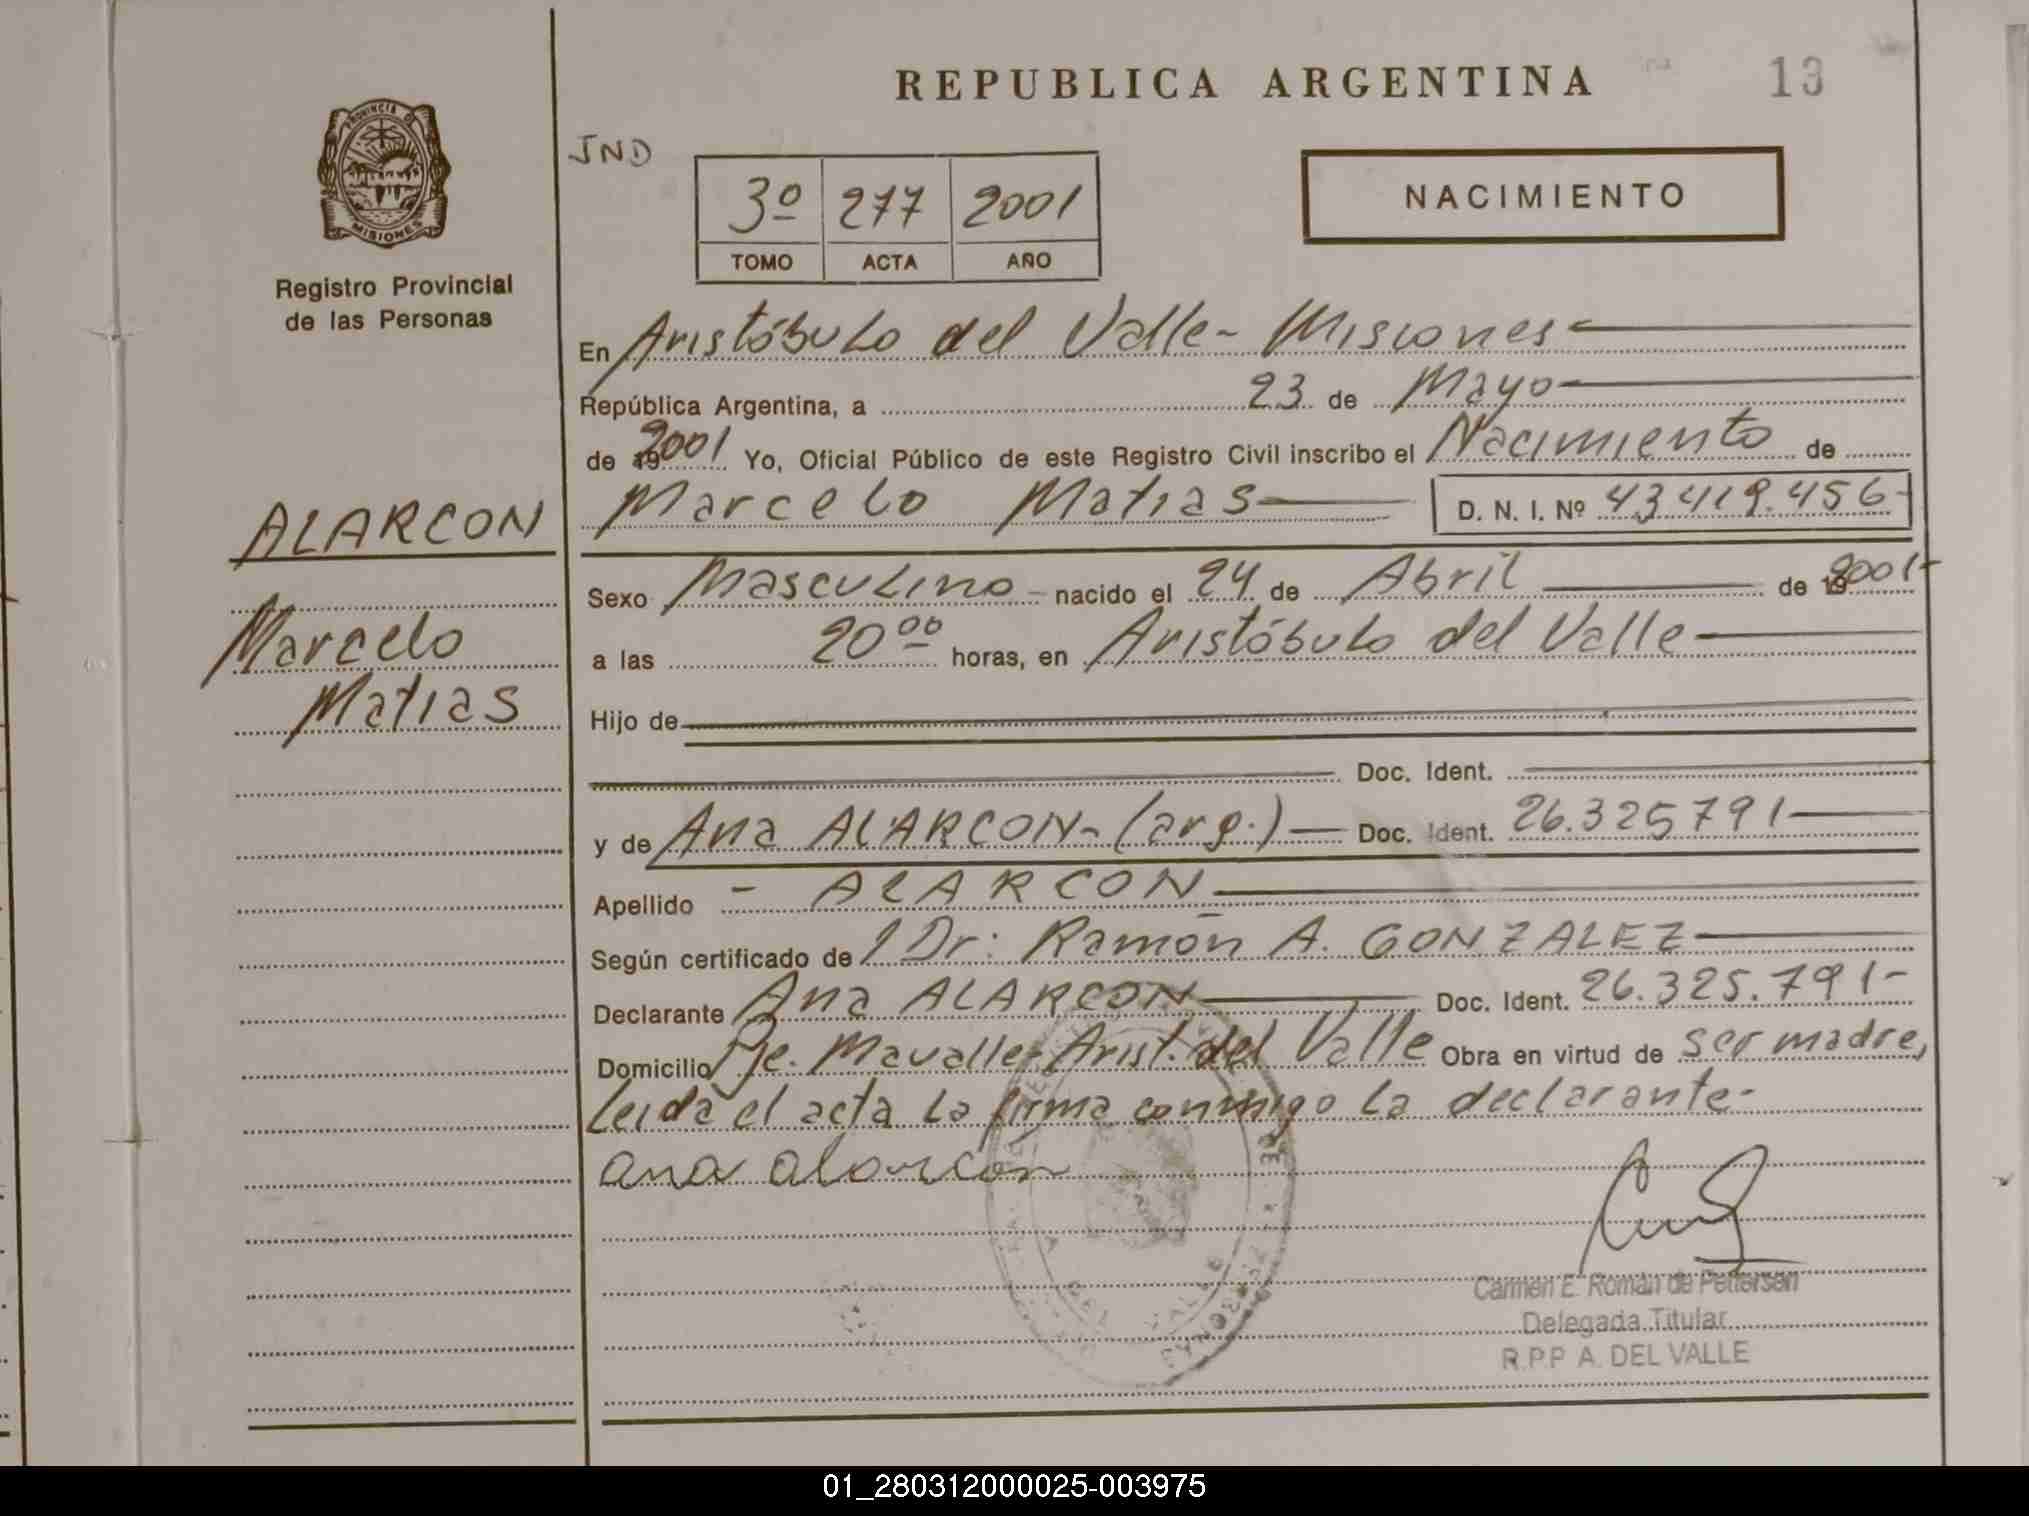 REPUBLICA ARGENTINA
13
PROVINCIA DE
MISIONES
Registro Provincial
de las Personas
JND
3º 277 2001
TOMO ACTA AÑO
NACIMIENTO
En Aristóbulo del Valle - Misiones
República Argentina, a 23 de Mayo
de 192001 Yo, Oficial Público de este Registro Civil inscribo el Nacimiento de
Marcelo Matias D. N. I. Nº 43.419.456-
ALARCON
Marcelo
Matias
Sexo Masculino - nacido el 24 de Abril de 192001-
a las 20 00 horas, en Aristóbulo del Valle
Hijo de
Doc. Ident.
y de Ana ALARCON - (arg.) Doc. Ident. 26.325791
Apellido - ALARCON
Según certificado de / Dr: Ramón A. GONZALEZ
Declarante Ana ALARCON Doc. Ident. 26.325.791-
Domicilio Pje. Mavalle - Arist. del Valle Obra en virtud de ser madre,
Leida el acta la firma conmigo la declarante-
ana alarcón
VALLE
PERSONAS
Carmen E. Román de Pettersen
Delegada Titular
R.P.P A. DEL VALLE
01_280312000025-003975